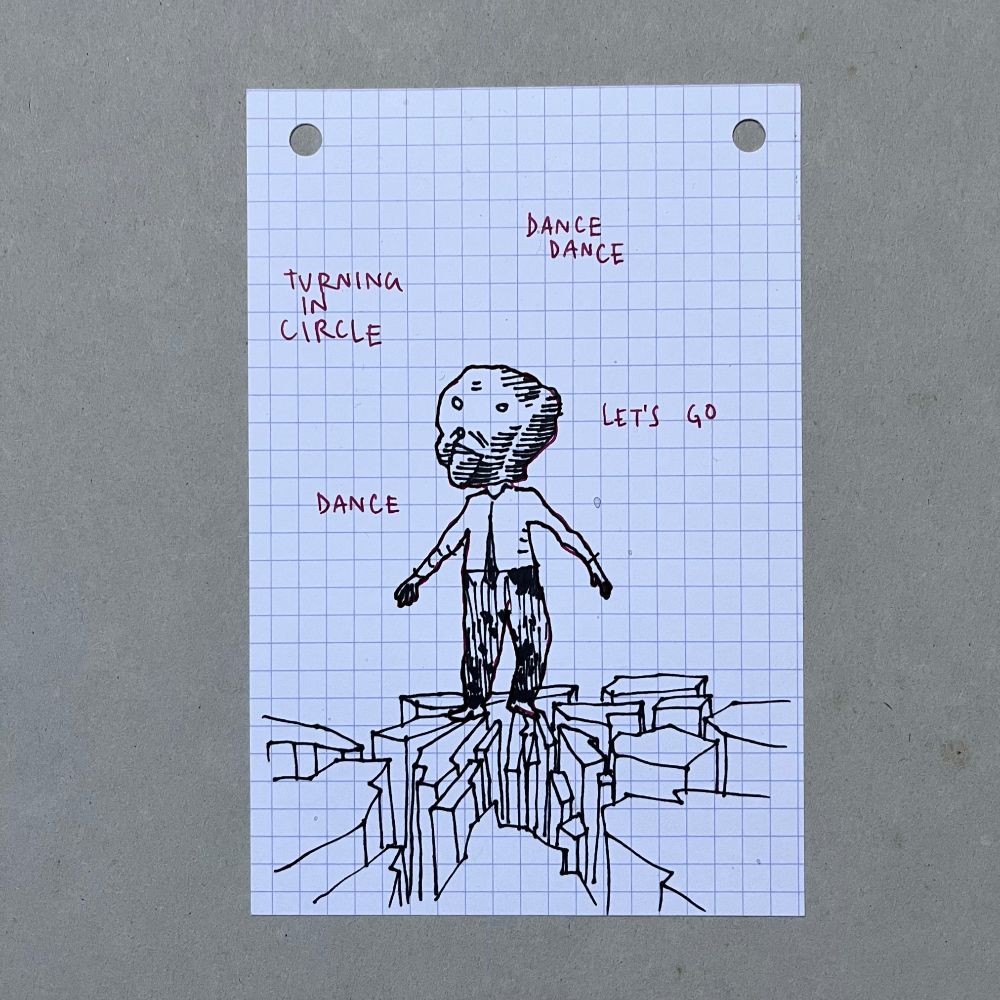 DANCE
DANCE
TURNING
IN
CIRCLE
LET'S GO
DANCE